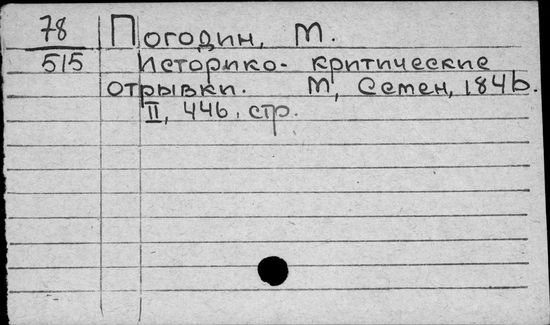 78 Погодин, М.
515 Историко- критические
отрывки. М, Семен, 1846.
II, 446, стр.